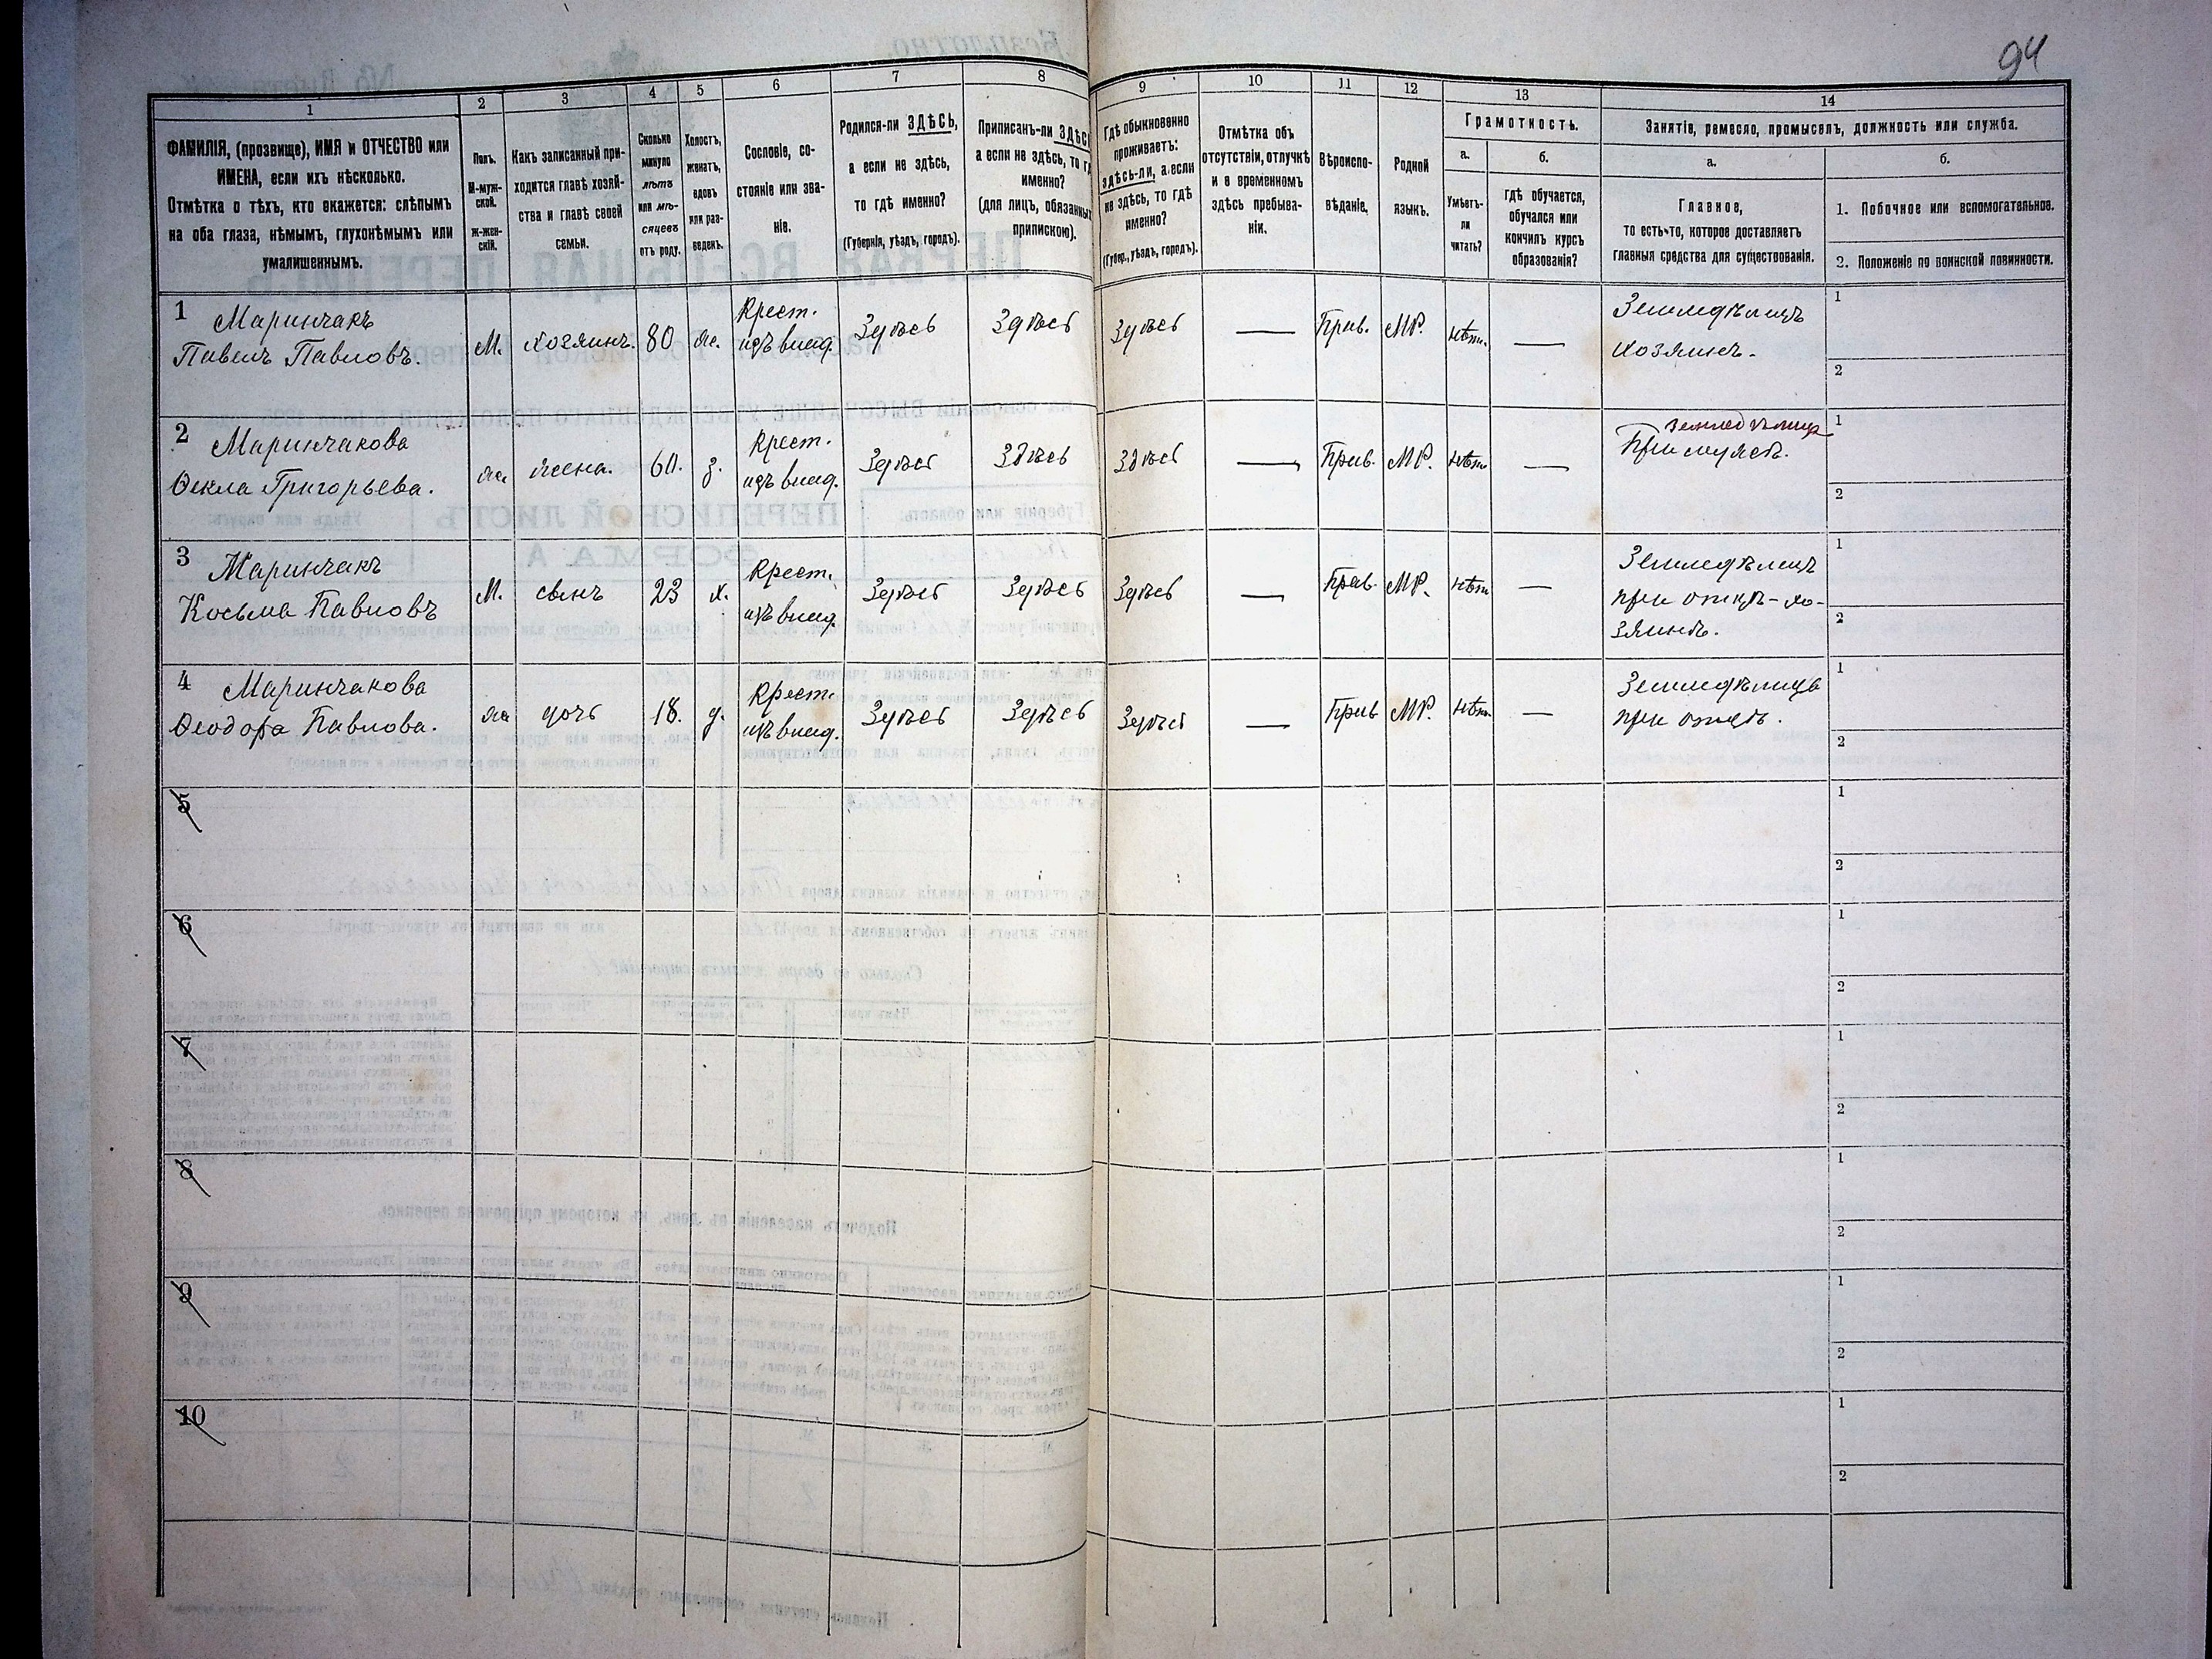 94
1
2
3
4
5
6
7
8
9
10
11
12
13
14
ФАМИЛІЯ, (прозвище), ИМЯ и ОТЧЕСТВО или
ИМЕНА, если ихъ нѣсколько.
Отмѣтка о тѣхъ, кто окажется: слѣпымъ
на оба глаза, нѣмымъ, глухонѣмымъ или
умалишеннымъ.
Полъ.
М-муж-
ской.
ж-жен-
скій.
Какъ записанный при-
ходится главѣ хозяй-
ства и главѣ своей
семьи.
Сколько
минуло
лѣтъ
или мѣ-
сяцевъ
отъ роду.
Холостъ,
женатъ,
вдовъ
или раз-
веденъ.
Сословіе, со-
стояніе или зва-
ніе.
Родился-ли ЗДѢСЬ,
а если не здѣсь,
то гдѣ именно?
(Губернія, уѣздъ, городъ).
Приписанъ-ли ЗДѢСЬ
а если не здѣсь, то гдѣ
именно?
(для лицъ, обязанныхъ
припискою).
Гдѣ обыкновенно
проживаетъ:
здѣсь-ли, а если
не здѣсь, то гдѣ
именно?
(Губер., уѣздъ, городъ).
Отмѣтка объ
отсутствіи, отлучкѣ
и о временномъ
здѣсь пребыва-
ніи.
Вѣроиспо-
вѣданіе.
Родной
языкъ.
Грамотность.
а.
б.
Умѣетъ-
ли
читать?
гдѣ обучается,
обучался или
кончилъ курсъ
образованія?
Занятіе, ремесло, промыселъ, должность или служба.
а.
б.
Главное,
то есть то, которое доставляетъ
главныя средства для существованія.
1. Побочное или вспомогательное.
2. Положеніе по воинской повинности.
1 Маринчакъ
Павелъ Павловъ.
М.
хозяинъ.
80
ж.
Крест.
изъ влад.
Здѣсь
Здѣсь
Здѣсь
—
Прав.
МР.
нѣтъ.
—
Земледѣлецъ
хозяинъ.
1
2
2 Маринчакова
Ѳекла Григорьева.
ж.
жена.
60.
з.
Крест.
изъ влад.
Здѣсь
Здѣсь
Здѣсь
—
Прав.
МР.
нѣтъ
—
земледѣлица
При мужѣ.
1
2
3 Маринчакъ
Косьма Павловъ
М.
сынъ
23
х.
Крест.
изъ влад.
Здѣсь
Здѣсь
Здѣсь
—
Прав.
МР.
нѣтъ
—
Земледѣлецъ
при отцѣ-хо-
зяинѣ.
1
2
4 Маринчакова
Ѳеодора Павлова.
ж
дочь
18.
д.
Крест.
изъ влад.
Здѣсь
Здѣсь
Здѣсь
—
Прав
МР.
нѣтъ.
—
Земледѣлица
при отцѣ.
1
2
5
1
2
6
1
2
7
1
2
8
1
2
9
1
2
10
1
2